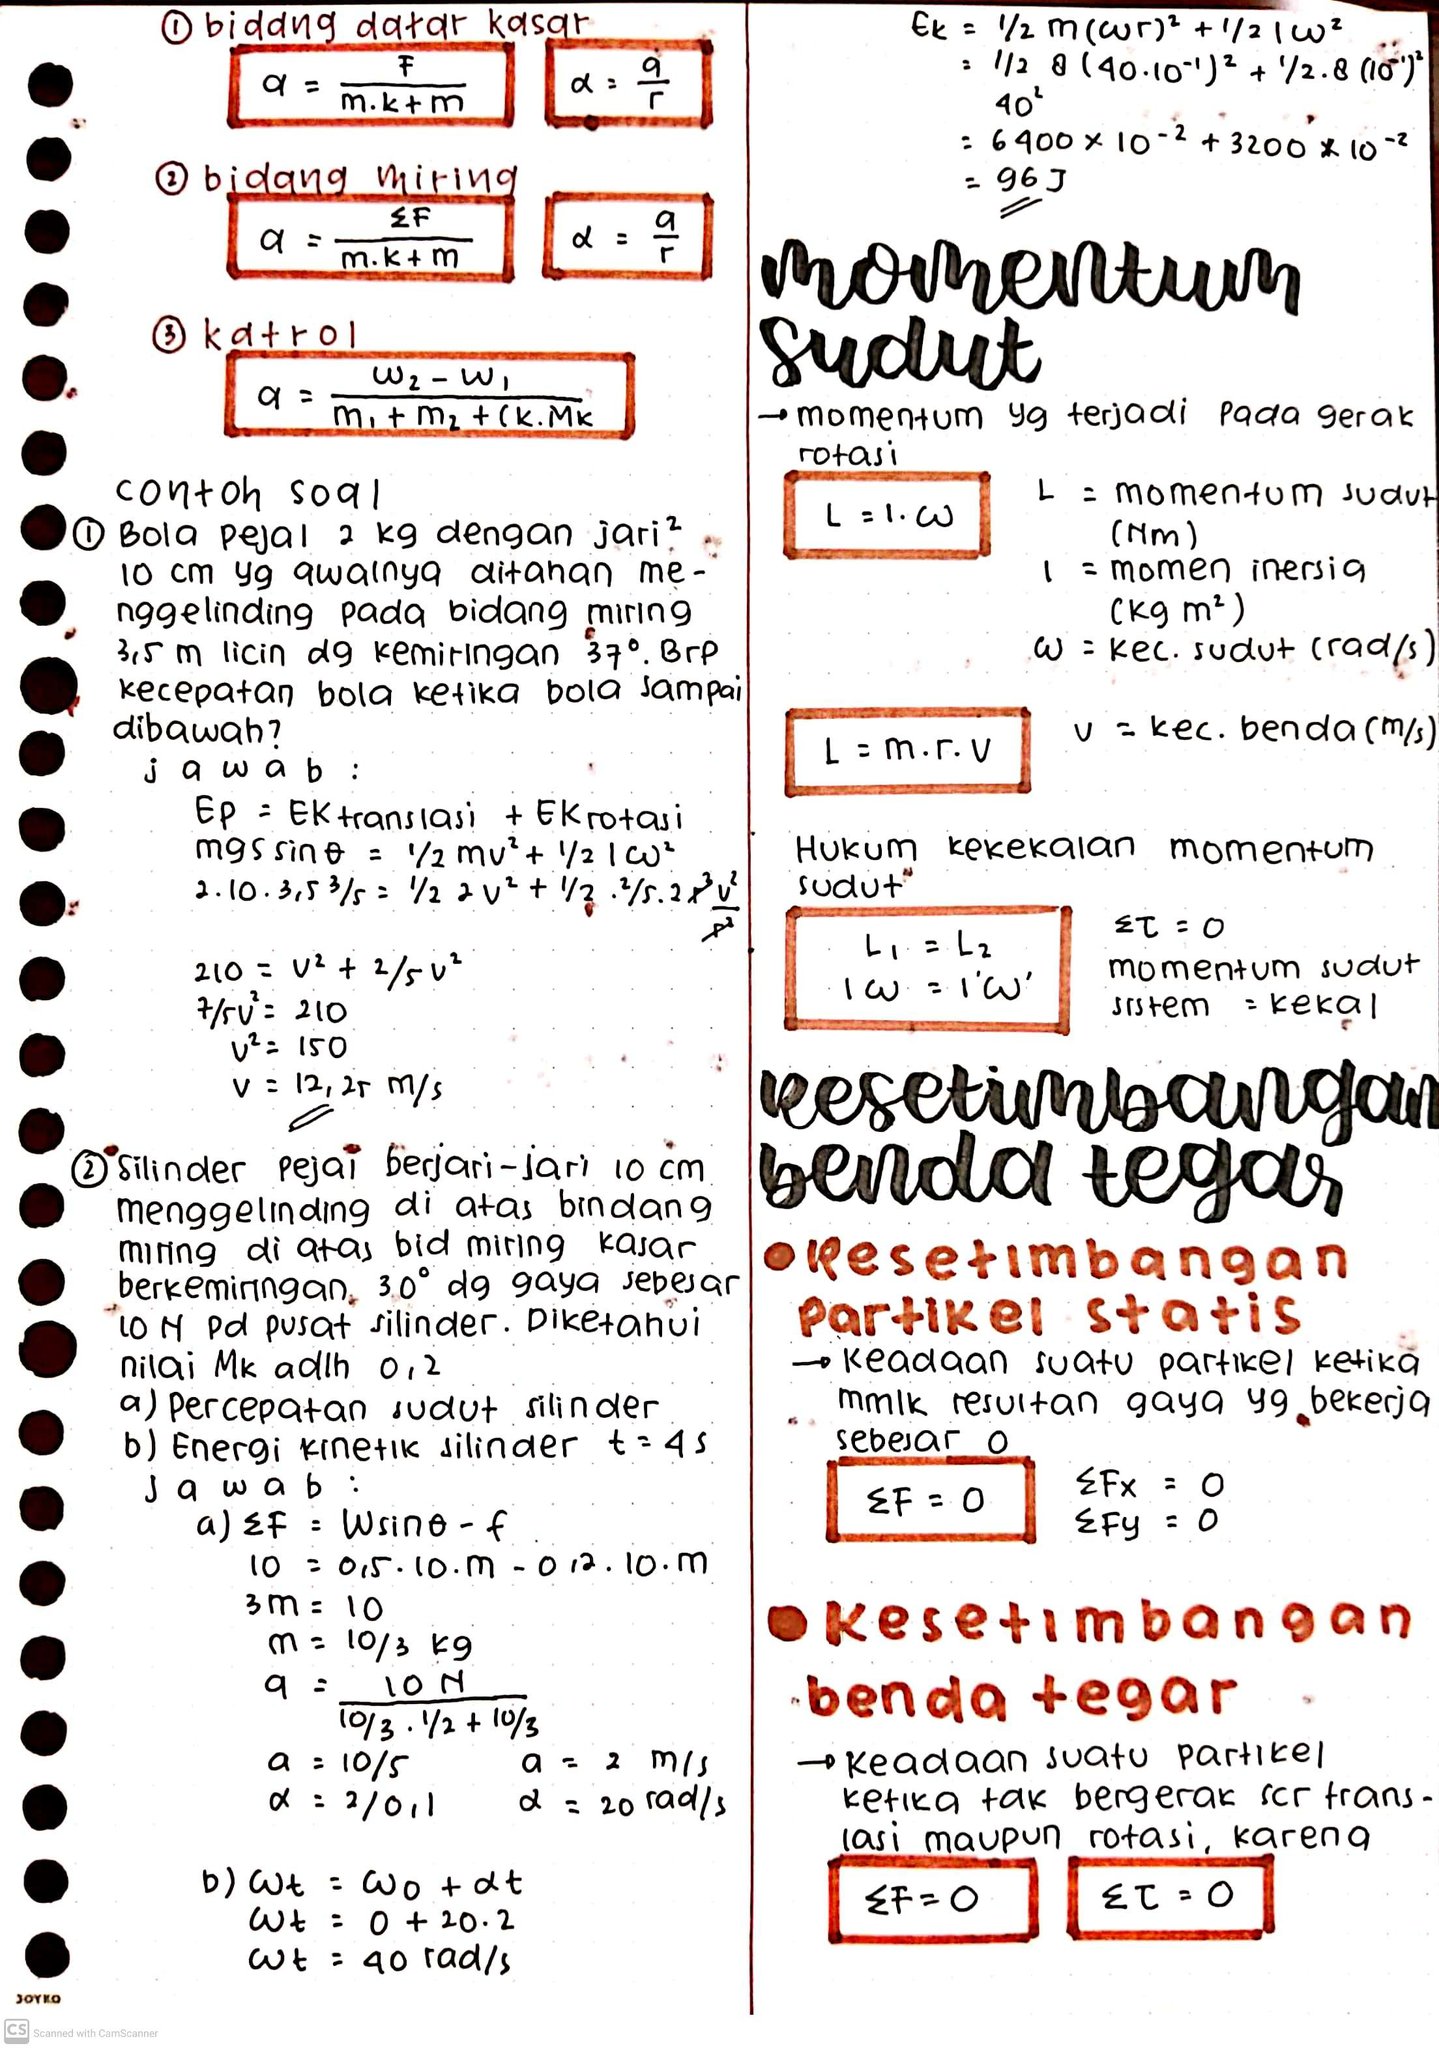 ① bidang datar kasar
a = F / m.k+m
α = a / r
② bidang miring
a = ΣF / m.k+m
α = a / r
③ katrol
a = w₂ - w₁ / m₁ + m₂ + (k.Mk
contoh soal
① Bola pejal 2 kg dengan jari²
10 cm yg awalnya ditahan me-
nggelinding pada bidang miring
3,5 m licin dg kemiringan 37°. Brp
kecepatan bola ketika bola sampai
dibawah?
jawab :
Ep = EK translasi + EK rotasi
mgs sin θ = 1/2 mv² + 1/2 I ω²
2.10.3,5 3/5 = 1/2 2 v² + 1/2 . 2/5. 2 r² v²/r²
210 = v² + 2/5 v²
7/5v² = 210
v² = 150
v = 12,25 m/s
② Silinder pejal berjari-jari 10 cm
menggelinding di atas bindang
miring di atas bid miring kasar
berkemiringan 30° dg gaya sebesar
10 N pd pusat silinder. Diketahui
nilai Mk adlh 0,2
a) Percepatan sudut silinder
b) Energi kinetik silinder t = 4s
Jawab :
a) ΣF = W sin θ - f
10 = 0,5.10.m - 0,2.10.m
3m = 10
m = 10/3 kg
a = 10 N / 10/3 . 1/2 + 10/3
a = 10/5 a = 2 m/s
α = 2/0,1 α = 20 rad/s
b) ωt = ω0 + αt
ωt = 0 + 20.2
ωt = 40 rad/s
JOYKO
CS Scanned with CamScanner
Ek = 1/2 m(ωr)² + 1/2 I ω²
= 1/2 8 (40.10⁻¹)² + 1/2.8 (10⁻¹)²
40²
= 6400 x 10⁻² + 3200 x 10⁻²
= 96 J
momentum
sudut
→ momentum yg terjadi pada gerak
rotasi
L = I.ω
L = momentum sudut
(Nm)
I = momen inersia
(kg m²)
ω = kec. sudut (rad/s)
L = m.r.v
v = kec. benda (m/s)
Hukum kekekalan momentum
sudut
L₁ = L₂
Iω = I'ω'
Στ = 0
momentum sudut
sistem = kekal
kesetimbangan
benda tegar
• Kesetimbangan
partikel statis
→ Keadaan suatu partikel ketika
mmlk resultan gaya yg bekerja
sebesar 0
ΣF = 0
ΣFx = 0
ΣFy = 0
• Kesetimbangan
benda tegar
→ Keadaan suatu partikel
ketika tak bergerak scr trans-
lasi maupun rotasi, karena
ΣF = 0
Στ = 0